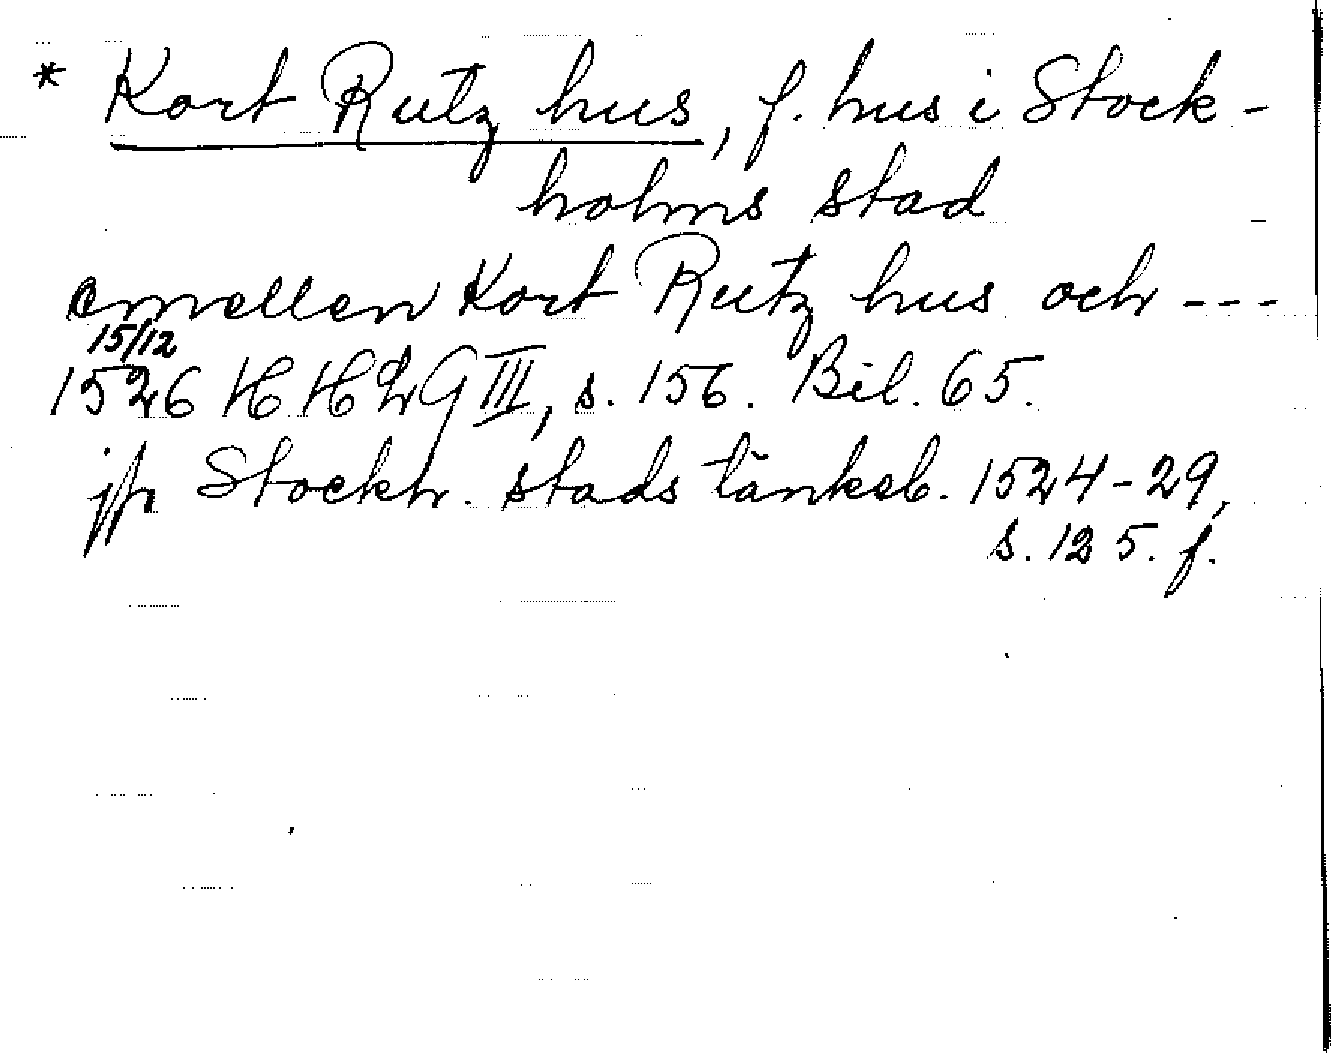 * Kort Rutz hus, f. hus i Stock-
holms stad
emellen Kort Rutz hus och ---
15/12
1526 H. H. L G III, s. 156. Bil. 65.
jfr Stockh. stads tänkeb. 1524-29,
s. 125. f.